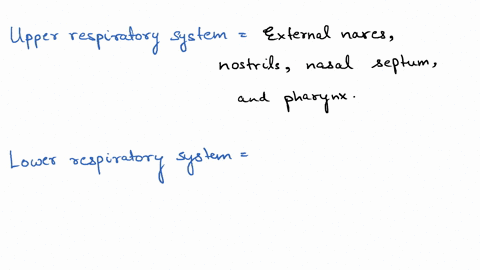 Upper respiratory system = External nares,
nostrils, nasal septum,
and pharynx.
Lower respiratory system =